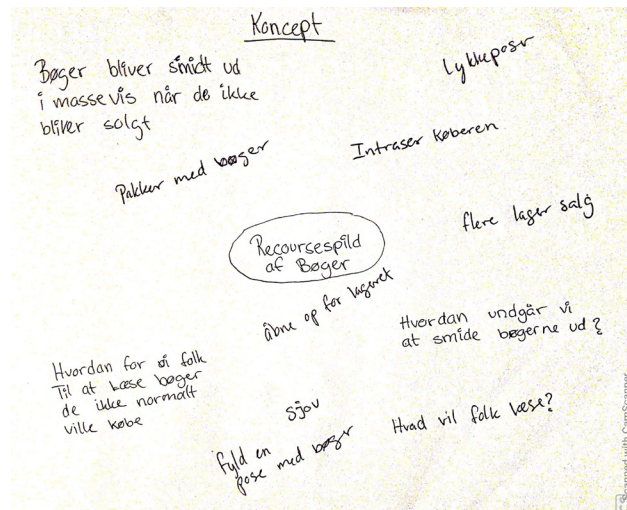 Koncept
Bøger bliver smidt ud
i massevis når de ikke
bliver solgt
Lykkeposr
Pakker med bøger
Intraser køberen
flere lager salg
Recoursespild
af Bøger
åbne op for lageret
Hvordan undgår vi
at smide bøgerne ud?
Hvordan for vi folk
Til at læse bøger
de ikke normalt
ville købe
sjov
fyld en
pose med bøger
Hvad vil folk læse?
Scanned with CamScanner